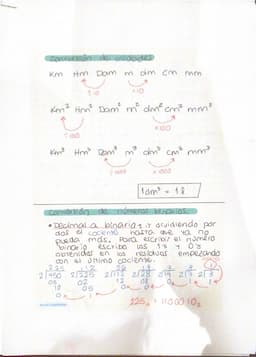 conversión de unidades
Km Hm Dam m dm cm mm
:10 ×10
Km² Hm² Dam² m² dm² cm² mm²
:100 ×100
Km³ Hm³ Dam³ m³ dm³ cm³ mm³
:1000 ×1000
1dm³ = 1l
conversión de números binarios
• Decimal a binario: ir dividiendo por
dos el cociente hasta que ya no
pueda más. Para escribir el número
binario escribe los 1's y 0's
obtenidos en los residuos empezando
con el último cociente.